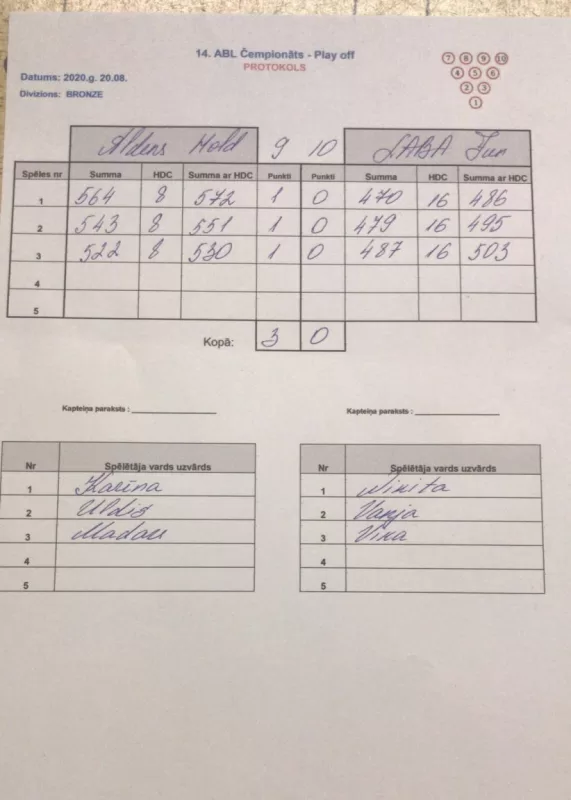 14. ABL Čempionāts - Play off
PROTOKOLS
Datums: 2020.g. 20.08.
Divizions: BRONZE
7 8 9 10
4 5 6
2 3
1
Aldens Hold 9 10 LABA Jun
Spēles nr Summa HDC Summa ar HDC Punkti Punkti Summa HDC Summa ar HDC
1 564 8 572 1 0 470 16 486
2 543 8 551 1 0 479 16 495
3 522 8 530 1 0 487 16 503
4
5
Kopā: 3 0
Kapteiņa paraksts : Kapteiņa paraksts :
Nr Spēlētāja vards uzvārds Nr Spēlētāja vards uzvārds
1 Karīna 1 Nikita
2 Uldis 2 Vanja
3 3 Vika
4 4
5 5